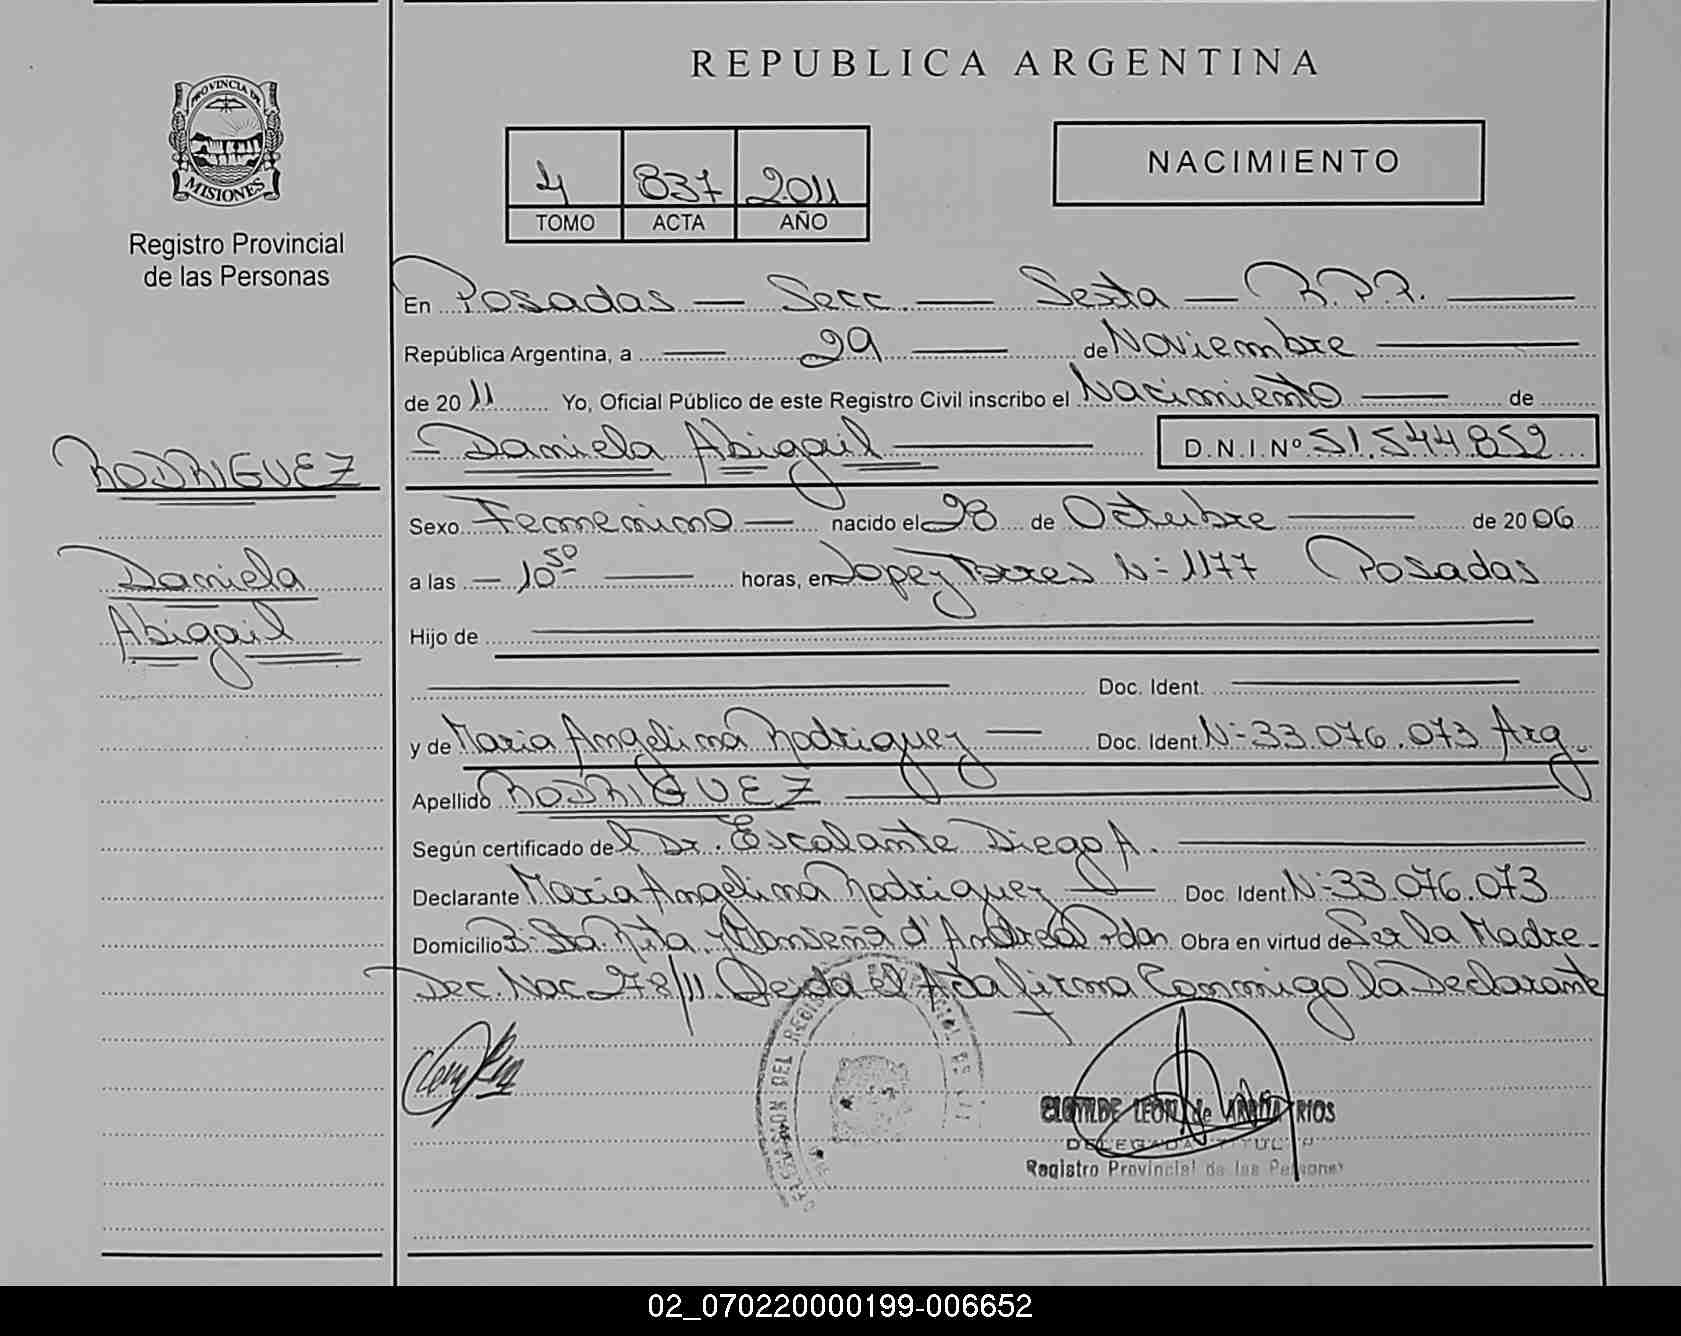 REPUBLICA ARGENTINA
PROVINCIA DE
MISIONES
Registro Provincial
de las Personas
4 837 2011
TOMO ACTA AÑO
NACIMIENTO
RODRIGUEZ
Daniela
Abigail
En Posadas — Secc. — Sexta — R.P.P. —
República Argentina, a — 29 — de Noviembre —
de 2011 Yo, Oficial Público de este Registro Civil inscribo el Nacimiento — de
— Daniela Abigail — D.N.I. Nº 51.544.852
Sexo Femenino — nacido el 28 de Octubre — de 2006
a las — 10 50 — horas, en Lopez Torres Nº 1177 Posadas
Hijo de —
— Doc. Ident. —
y de Maria Angelina Rodriguez — Doc. Ident. Nº 33.076.073 Arg.
Apellido RODRIGUEZ —
Según certificado del Dr. Escalante Diego A. —
Declarante María Angelina Rodriguez — Doc. Ident. Nº 33.076.073
Domicilio Bº Sta Rita y Monseñor d' Andrea Pdas Obra en virtud de Ser la Madre -
Dec. Nac 278/11. Leída el Acta firma Conmigo la Declarante
CLOTILDE LEON de RIOS
DELEGADA TITULAR
Registro Provincial de las Personas
02_070220000199-006652